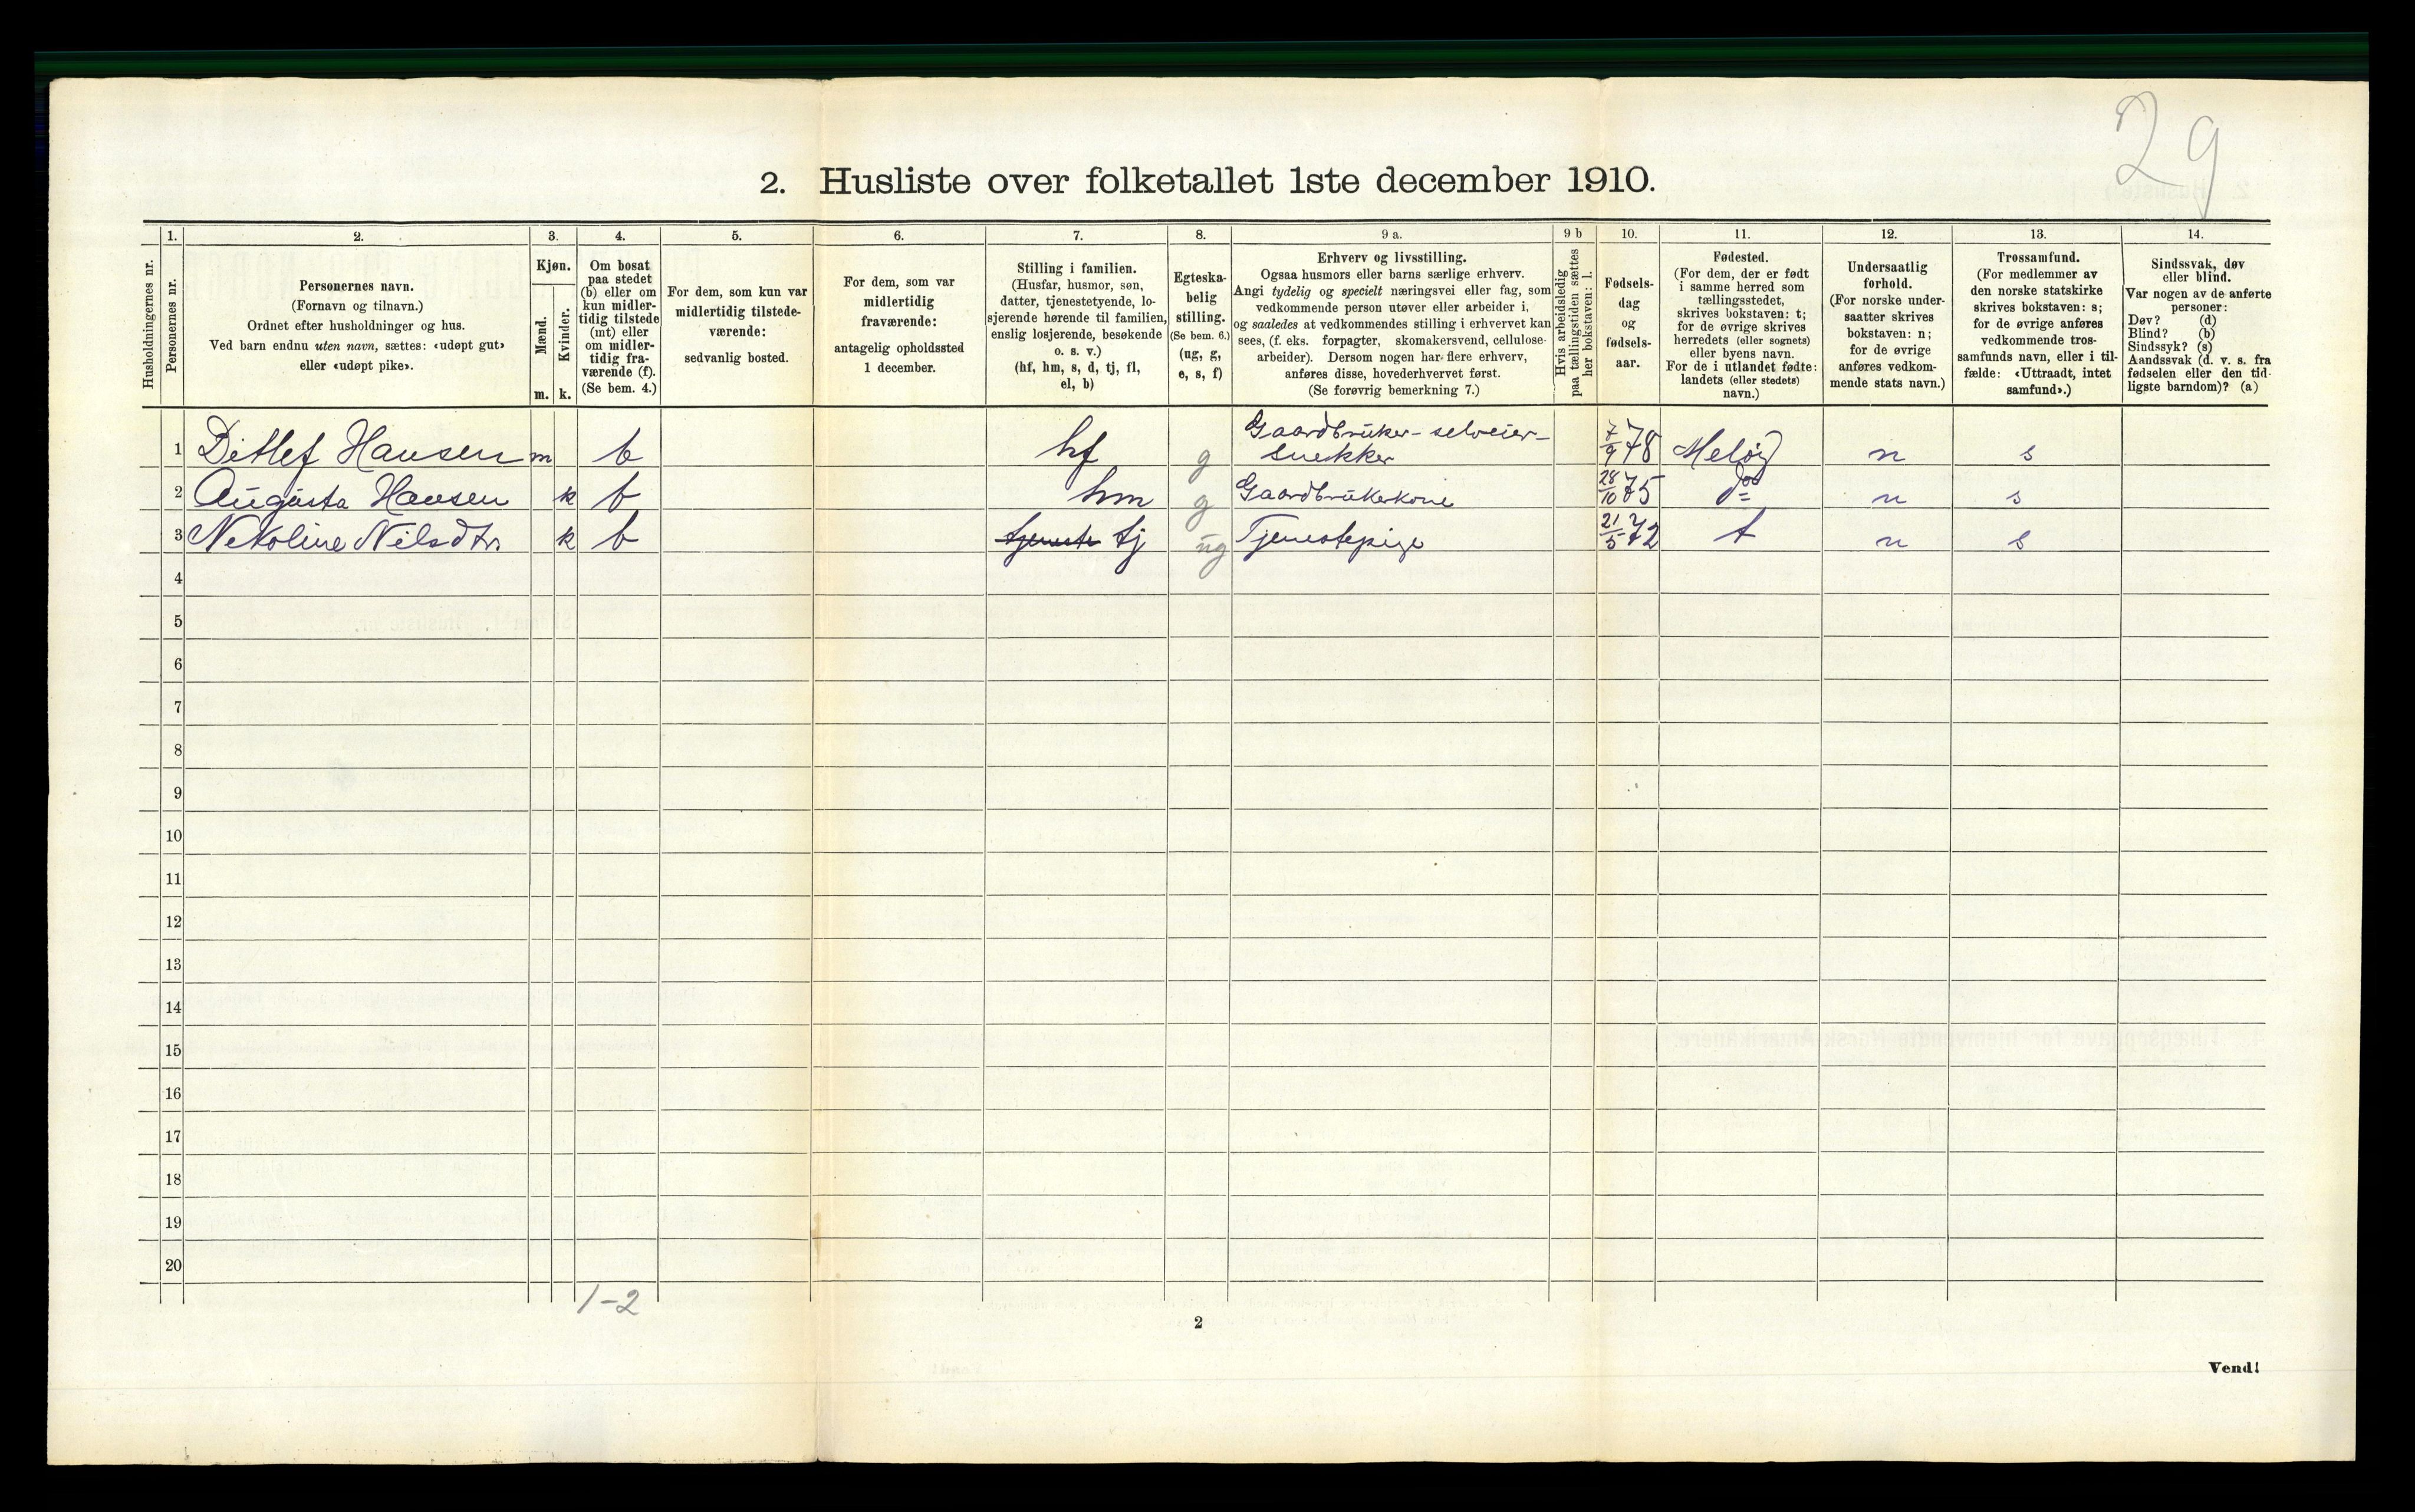 29
2. Husliste over folketallet 1ste december 1910.
Husholdningernes nr.
1.
Personernes nr.
2.
Personernes navn.
(Fornavn og tilnavn.)
Ordnet efter husholdninger og hus.
Ved barn endnu uten navn, sættes: «udøpt gut»
eller «udøpt pike».
3.
Kjøn.
Mænd.
Kvinder.
m. k.
4.
Om bosat
paa stedet
(b) eller om
kun midler-
tidig tilstede
(mt) eller
om midler-
tidig fra-
værende (f).
(Se bem. 4.)
5.
For dem, som kun var
midlertidig tilstede-
værende:
sedvanlig bosted.
6.
For dem, som var
midlertidig
fraværende:
antagelig opholdssted
1 december.
7.
Stilling i familien.
(Husfar, husmor, søn,
datter, tjenestetyende, lo-
sjerende hørende til familien,
enslig losjerende, besøkende
o. s. v.)
(hf, hm, s, d, tj, fl,
el, b)
8.
Egteska-
belig
stilling.
(Se bem. 6.)
(ug, g,
e, s, f)
9 a.
Erhverv og livsstilling.
Ogsaa husmors eller barns særlige erhverv.
Angi tydelig og specielt næringsvei eller fag, som
vedkommende person utøver eller arbeider i,
og saaledes at vedkommendes stilling i erhvervet kan
sees, (f. eks. forpagter, skomakersvend, cellulose-
arbeider). Dersom nogen har flere erhverv,
anføres disse, hovederhvervet først.
(Se forøvrig bemerkning 7.)
9 b
Hvis arbeidsledig
paa tællingstiden sættes
her bokstaven: l.
10.
Fødsels-
dag
og
fødsels-
aar.
11.
Fødested.
(For dem, der er født
i samme herred som
tællingsstedet,
skrives bokstaven: t;
for de øvrige skrives
herredets (eller sognets)
eller byens navn.
For de i utlandet fødte:
landets (eller stedets)
navn.)
12.
Undersaatlig
forhold.
(For norske under-
saatter skrives
bokstaven: n;
for de øvrige
anføres vedkom-
mende stats navn.)
13.
Trossamfund.
(For medlemmer av
den norske statskirke
skrives bokstaven: s;
for de øvrige anføres
vedkommende tros-
samfunds navn, eller i til-
fælde: «Uttraadt, intet
samfund».)
14.
Sindssvak, døv
eller blind.
Var nogen av de anførte
personer:
Døv? (d)
Blind? (b)
Sindssyk? (s)
Aandssvak (d. v. s. fra
fødselen eller den tid-
ligste barndom)? (a)
1 Ditlef Hansen m b hf g Gaardbruker-selveier- snekker 7/9 78 Meløy n s
2 Augusta Hansen k b hm g Gaardbrukerkone 28/10 75 do n s
3 Nekoline Nilsdtr. k b tjeneste tj ug Tjenestepige 21/5 72 t n s
4
5
6
7
8
9
10
11
12
13
14
15
16
17
18
19
20
1-2
2
Vend!